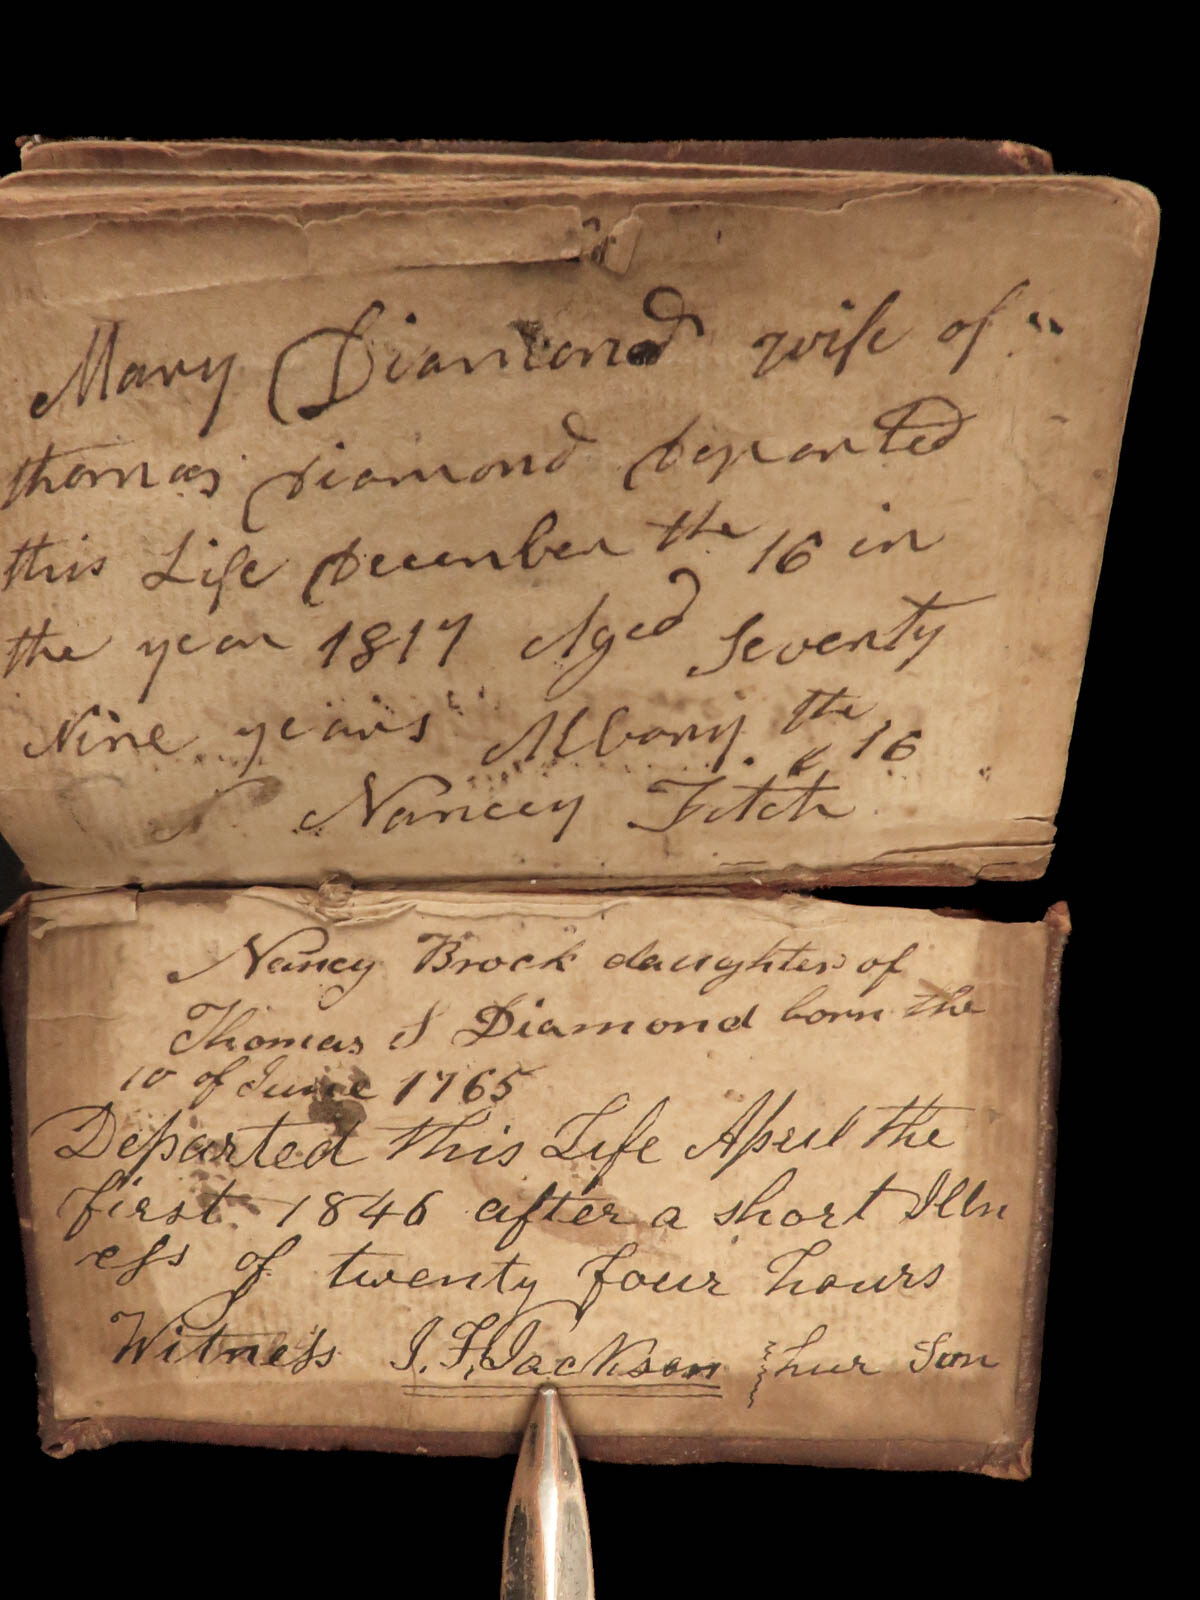 Mary Diamond wife of "
thomas Diamond Departed
this Life December the 16 in
the year 1817 Aged Seventy
Nine years Albany the 16
Nancey Fitch
Nancy Brock daughter of
Thomas & Diamond born the
10 of June 1765
Departed this Life April the
first 1846 after a short Illn
ess of twenty four hours
Witness J. F. Jackson hur Son